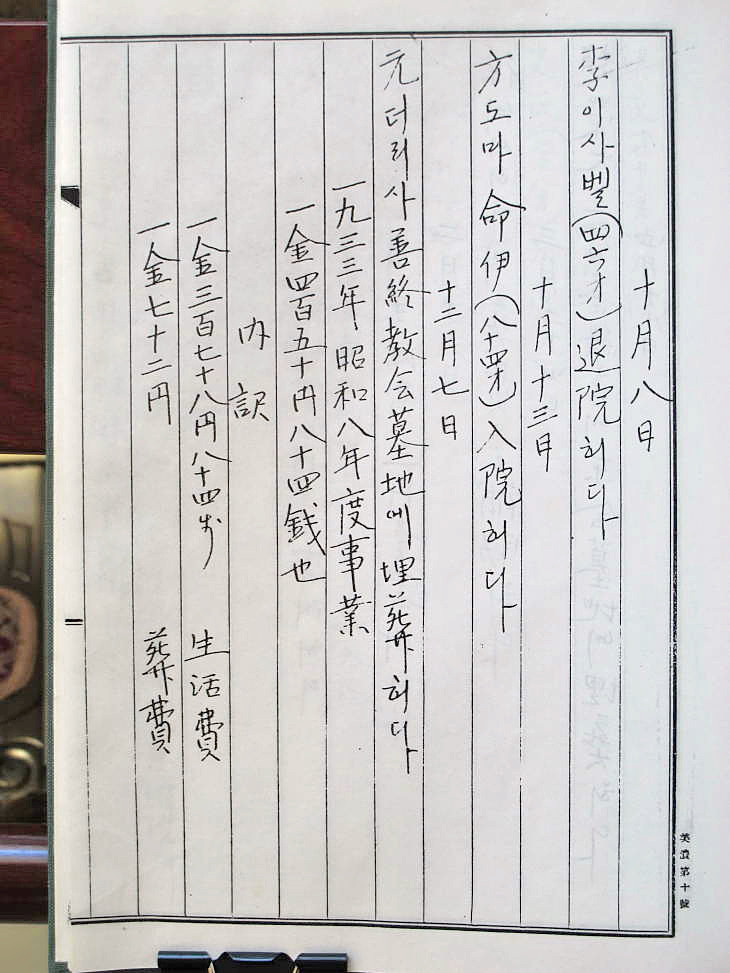 十月八日
李이사벨(四六才)退院허다
十月十三日
方도마 命伊(八十四才)入院허다
十二月七日
元더리사善終敎会墓地에埋葬허다
一九三三年昭和八年度事業
一金四百五十円八十四銭也
内訳
一金三百七十八円八十四戋 生活費
一金七十二円 葬費
美濃第十號